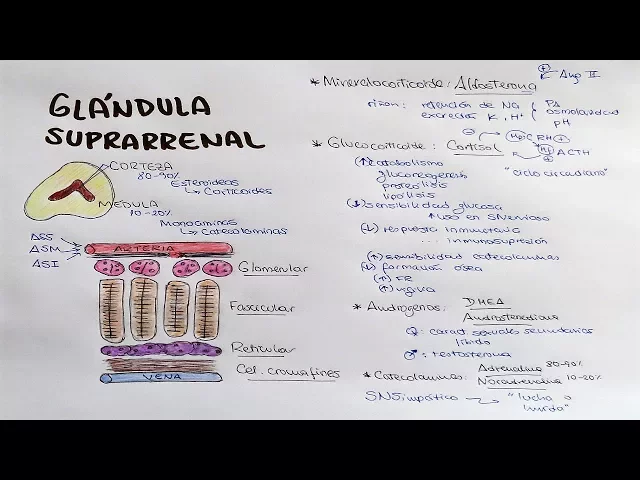 GLÁNDULA
SUPRARRENAL
CORTEZA
80-90%
Esteroideos
↳ Corticoides
MÉDULA
10-20%
Monoaminas
↳ Catecolaminas
ASS
ASM
ASI
ARTERIA
Glomerular
Fascicular
Reticular
Cél. cromafines
VENA
* Mineralocorticoide: Aldosterona
(+) Ang II
riñón: retención de Na
excreción K, H+
PA
osmolaridad
pH
* Glucocorticoide: Cortisol
(-) Hipot CRH (+)
ACTH
(+)
"ciclo circadiano"
(↑) catabolismo
gluconeogenesis
proteolisis
lipolisis
(↓) sensibilidad glucosa
↑ uso en SNervioso
(↓) respuesta inmunitaria
... inmunosupresión
(↑) sensibilidad catecolaminas
(↓) formación ósea
(↑) FR
(↑) vigilia
* Andrógenos: DHEA
Androstenediona
♀: caract sexuales secundarios
libido
♂: testosterona
* Catecolaminas: Adrenalina 80-90%
Noradrenalina 10-20%
SNSimpático → "lucha o
huida"